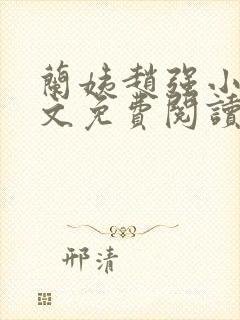 蘭姨趙強小
文免費閱讀
邢清